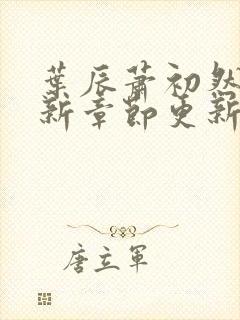 葉辰蕭初然
新章節更新
唐立軍